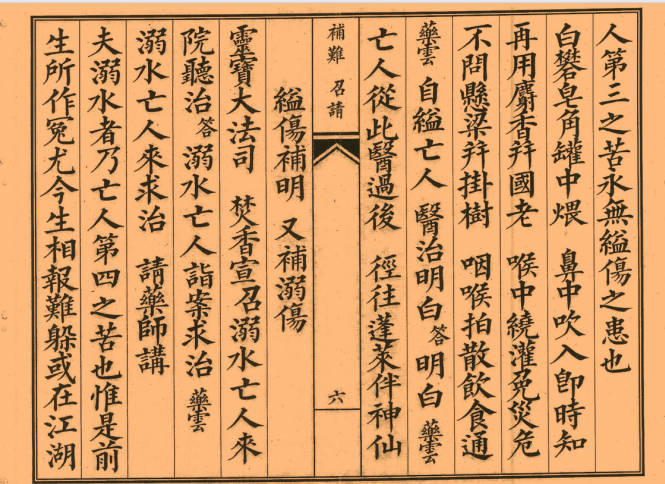 人第三之苦永無縊傷之患也
白礬皂角罐中煨　鼻中吹入卽時知
再用麝香幷國老　喉中繞灌免災危
不問懸梁幷掛樹　咽喉拍散飲食通
藥雲　自縊亡人　醫治明白　答　明白　藥雲
亡人從此醫過後　徑往蓬萊伴神仙
補難　召請
六
縊傷補明　又補溺傷
靈寶大法司　焚香宣召溺水亡人來
院聽治　答　溺水亡人詣案求治　藥雲
溺水亡人來求治　請藥師講
夫溺水者乃亡人第四之苦也惟是前
生所作冤尤今生相報難躲或在江湖